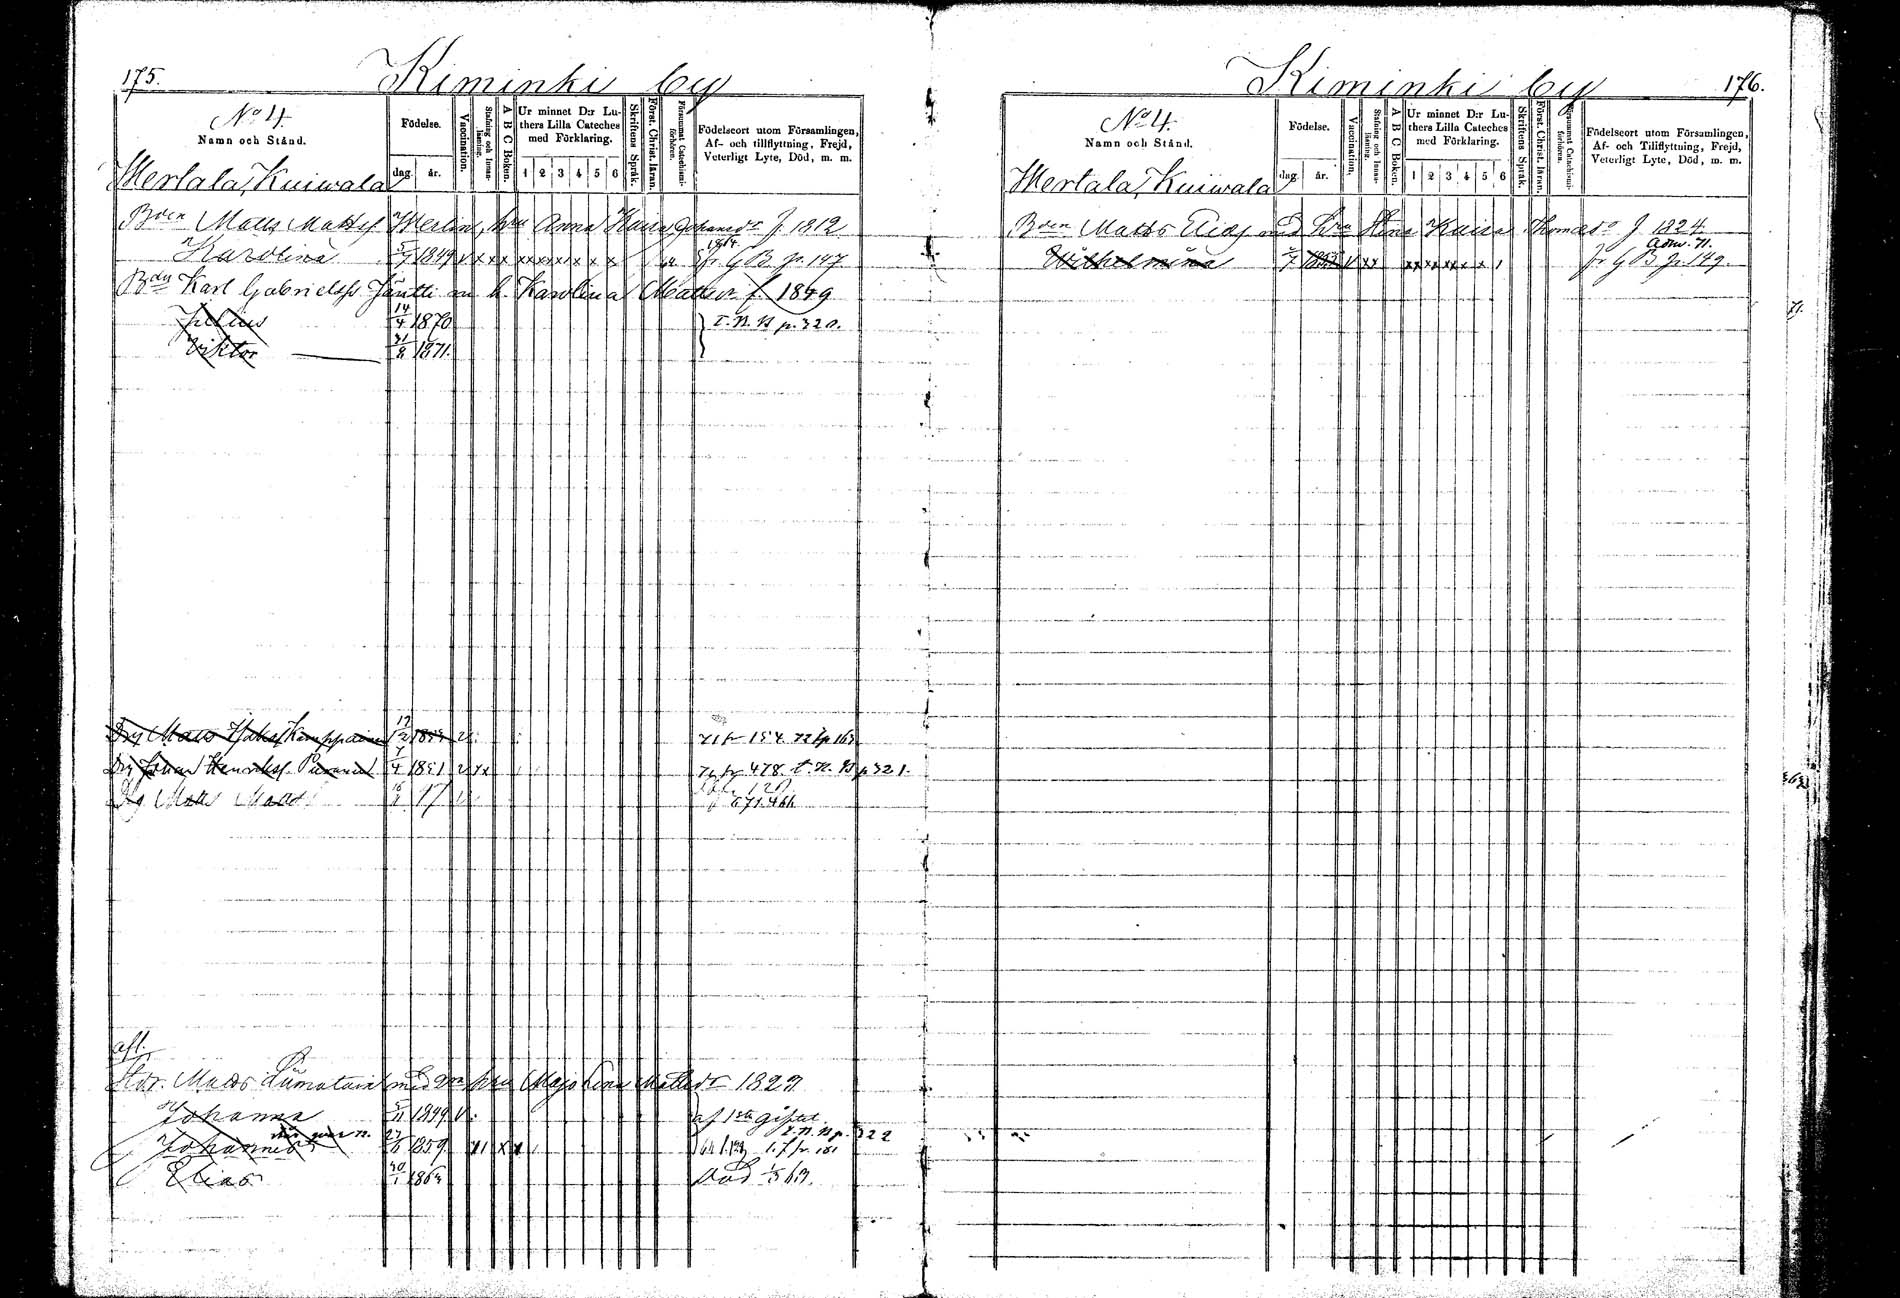 175.
Kiminki by
No 4.
Namn och Stånd.
Födelse.
dag.
år.
Vaccination.
Stafning och Innanläsning.
A B C Boken.
Ur minnet D:r Luthers Lilla Cateches med Förklaring.
1 2 3 4 5 6
Skriftens Språk.
Först. Christ. läran.
Försummat Catechismiförhören.
Födelseort utom Församlingen,
Af- och tillflyttning, Frejd,
Veterligt Lyte, Död, m. m.
Mertala, Kuiwala
Bden Matts Mattss Merlin, hru Anna Kaisa Johansdr f. 1812
Karolina 5/7 1849 v x x x x x x x x x x 1864 fr G B p. 147
Bdn Karl Gabrielss Jäntti m h. Karolina Mattsdr f. 1849
Julius 14/4 1870 T. N. B p. 320.
Viktor 31/8 1871.
Drg Matts Kamppainen 12/12 71 fr 154. 72 t p 163
Drg Johan Henrikss. Puranen 7/4 1851 v x x 478. t. N. B p 321.
Drg Matts Matts 17
afl.
Matts Liimatain med hru Maja Lena Mattsdr 1827
Johanna 5/11 1849 v af 1sta giftet
Johannes 27 1859. x 1 x x T. N. B p. 322
Elias 30/1 1863 död 1/5 63.
176.
Kiminki by
No 4.
Namn och Stånd.
Födelse.
dag.
år.
Vaccination.
Stafning och Innanläsning.
A B C Boken.
Ur minnet D:r Luthers Lilla Cateches med Förklaring.
1 2 3 4 5 6
Skriftens Språk.
Först. Christ. läran.
Försummat Catechismiförhören.
Födelseort utom Församlingen,
Af- och Tillflyttning, Frejd,
Veterligt Lyte, Död, m. m.
Mertala, Kuiwala
Bden Matts Elias med hru Stina Kaisa Thomasdr f. 1824
Wilhelmina 1853 v x x x x x x x x 1 adm. 71. fr G B p. 149.